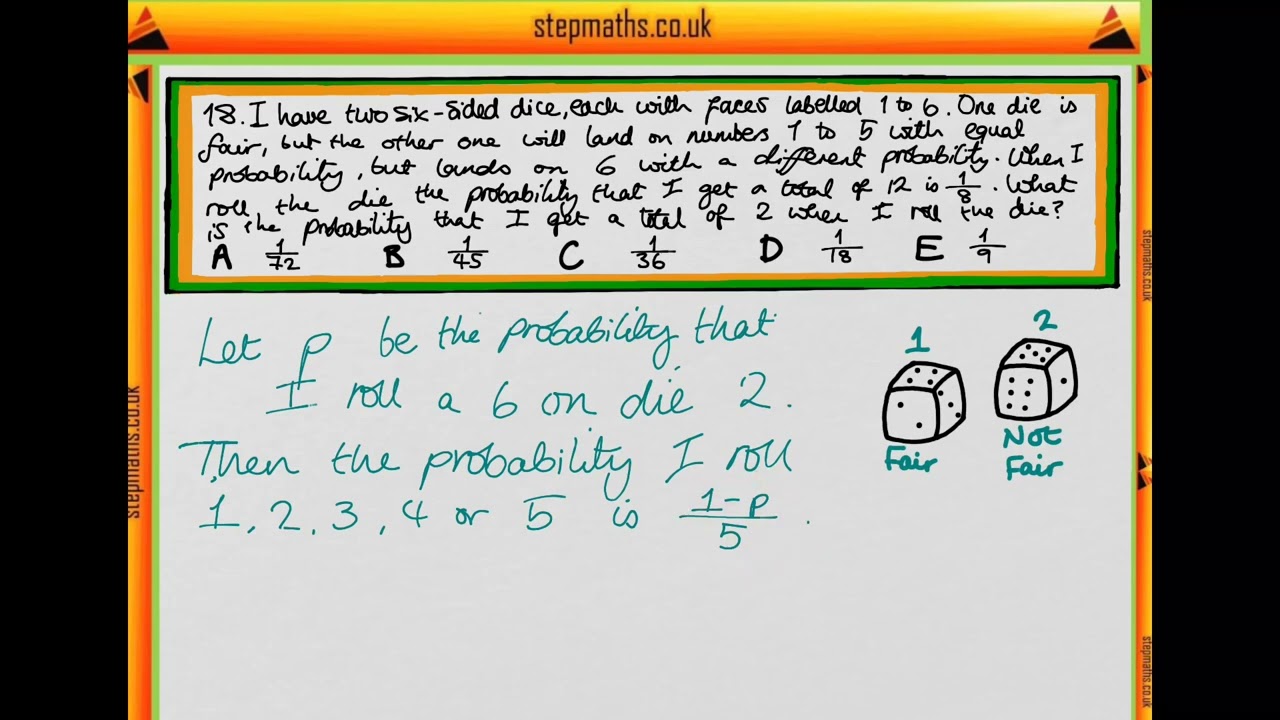 stepmaths.co.uk
18. I have two six-sided dice, each with faces labelled 1 to 6. One die is
fair, but the other one will land on numbers 1 to 5 with equal
probability, but lands on 6 with a different probability. When I
roll the die the probability that I get a total of 12 is 1/8. What
is the probability that I get a total of 2 when I roll the die?
A 1/72 B 1/45 C 1/36 D 1/18 E 1/9
Let p be the probability that
I roll a 6 on die 2.
Then the probability I roll
1, 2, 3, 4 or 5 is (1-p)/5.
1
2
Fair
Not
Fair
stepmaths.co.uk
stepmaths.co.uk
stepmaths.co.uk